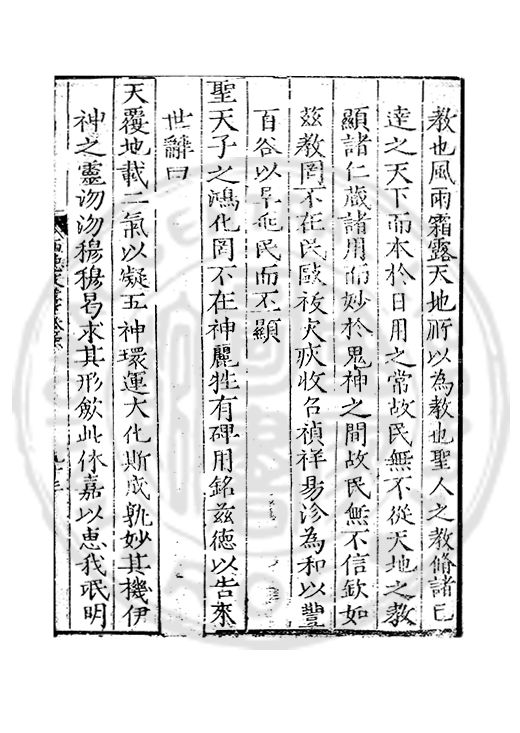 教也風雨霜露天地所以為教也聖人之教脩諸已
達之天下而本於日用之常故民無不從天地之教
顯諸仁蔵諸用而妙於鬼神之間故民無不信欽如
茲教罔不在民歐祓灾疾收召禎祥易沴為和以豐
百谷以阜兆民而丕顯
聖天子之鴻化罔不在神麗牲有碑用銘茲德以告來
世辭曰
天覆地載二氣以凝五神環運大化斯成孰妙其機伊
神之靈沕沕穆穆曷求其形歆此休嘉以惠我氓明